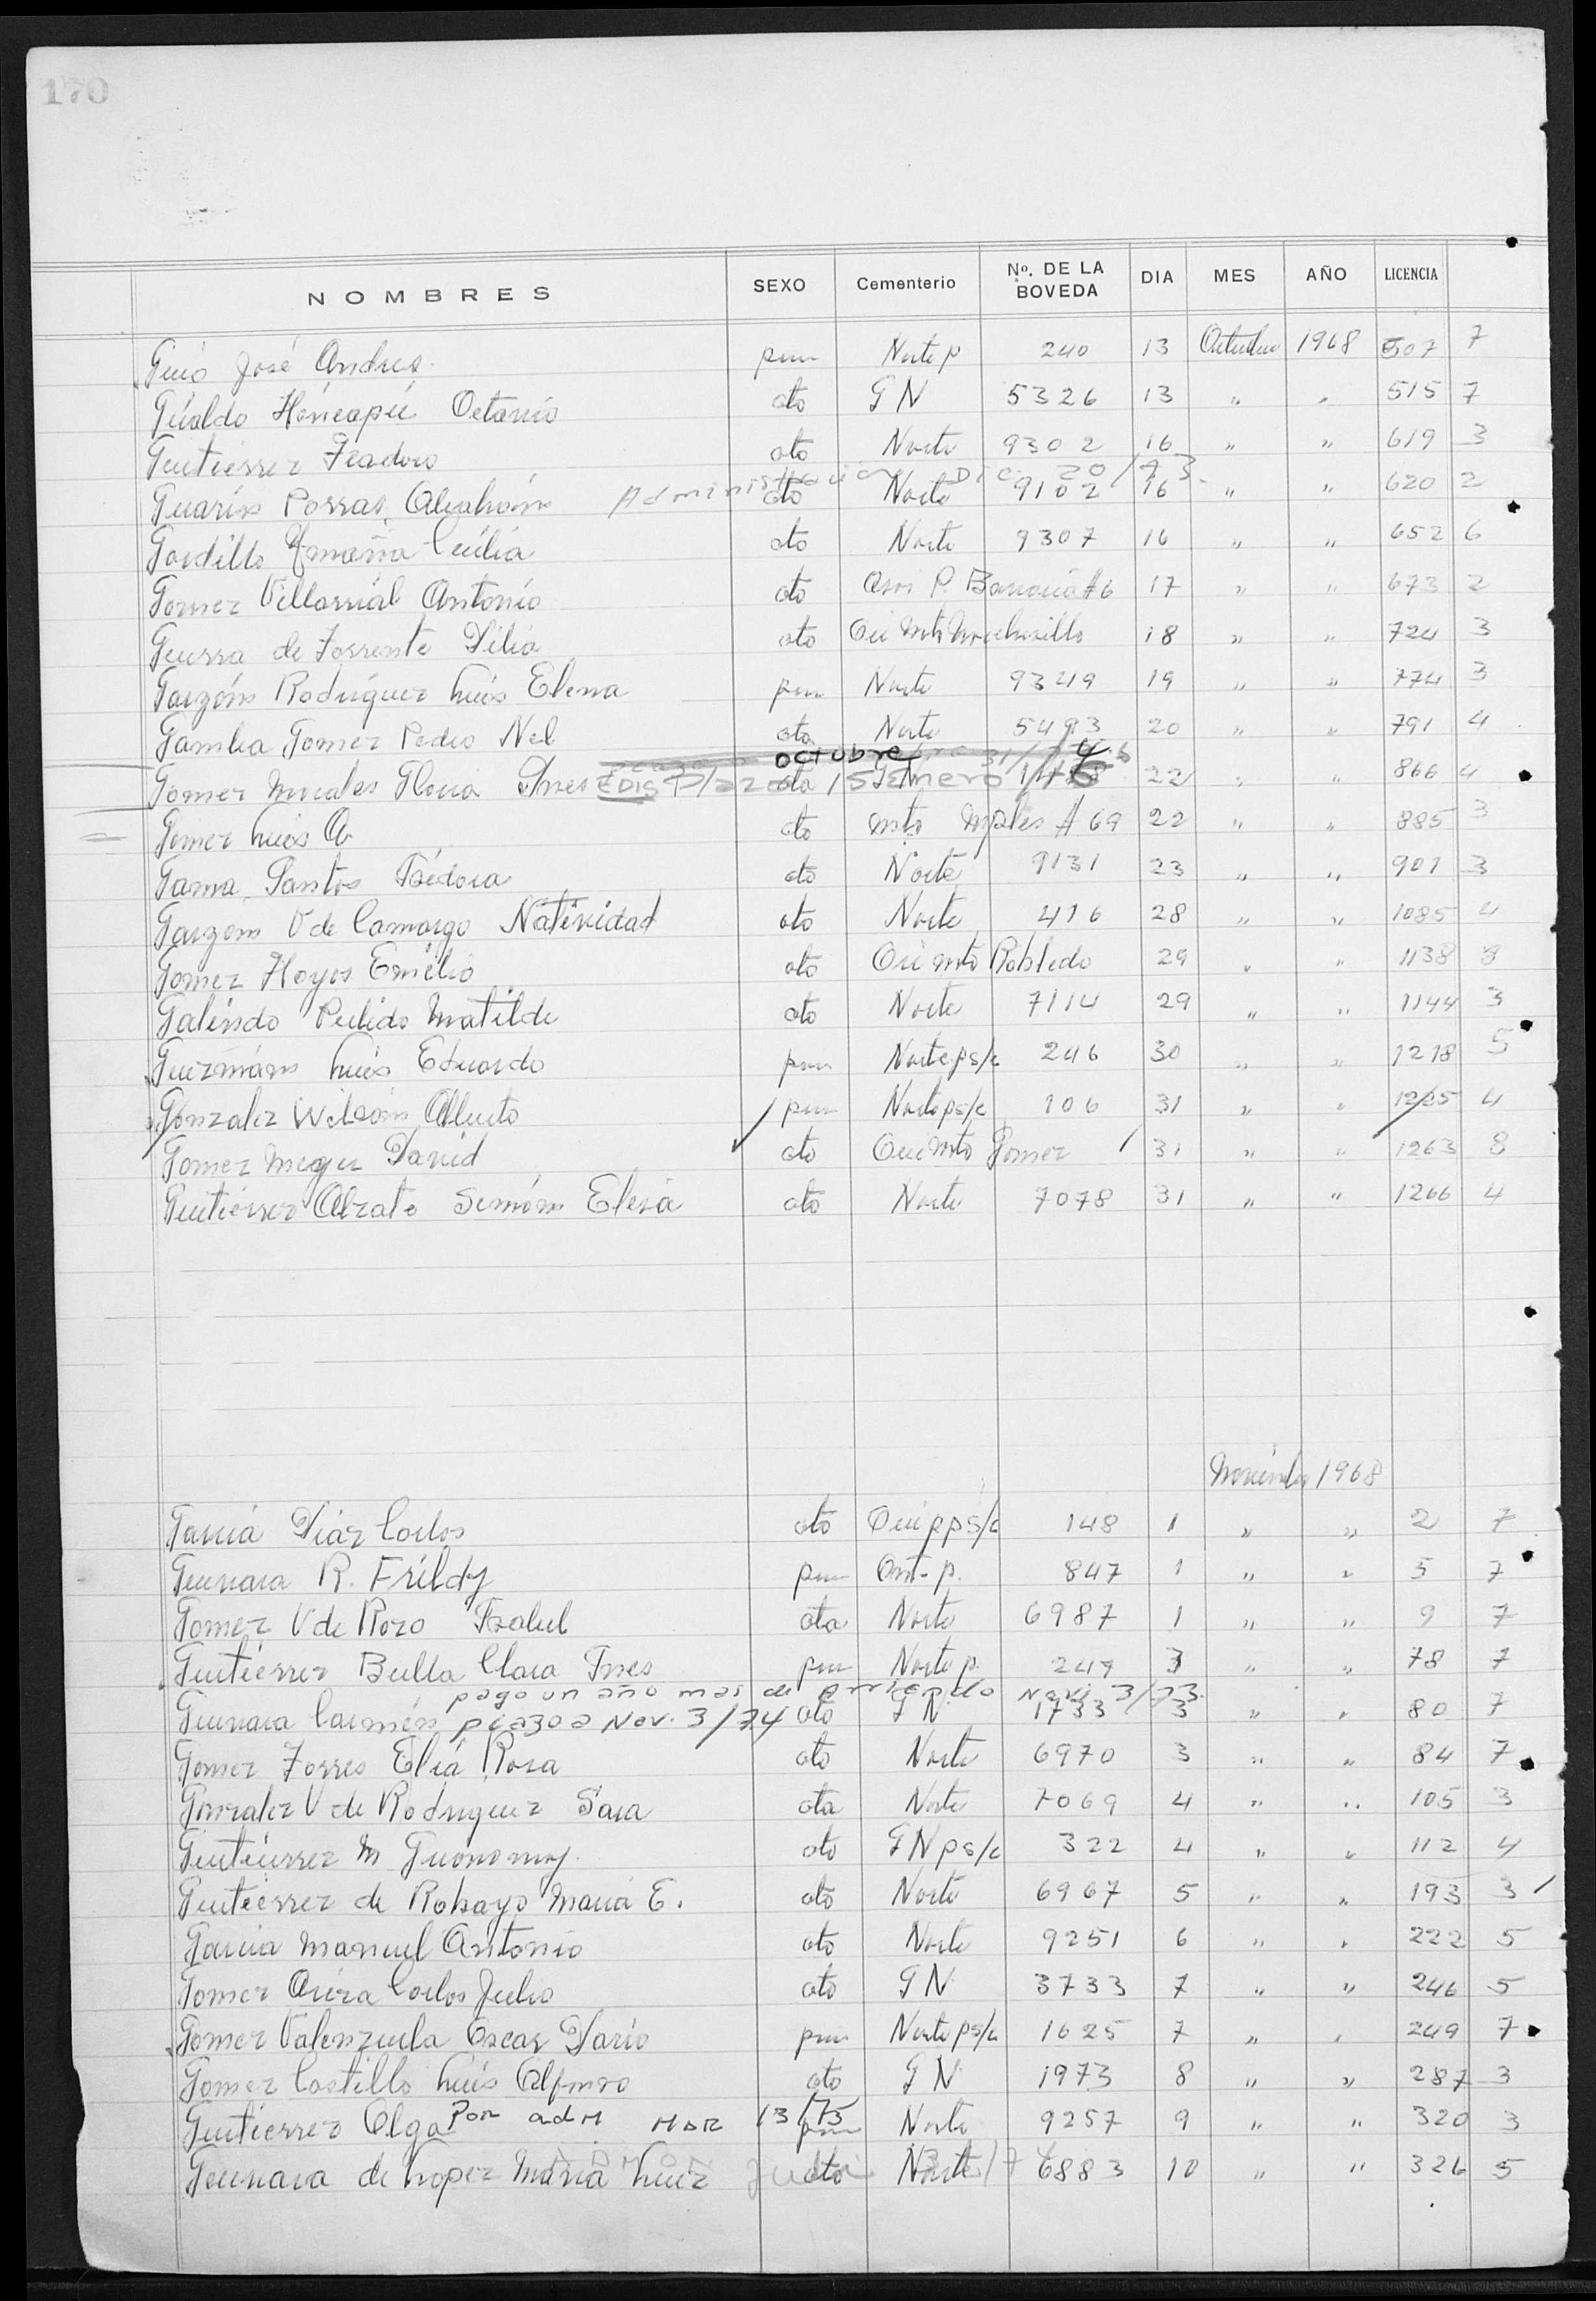 170
NOMBRES SEXO Cementerio Nº. DE LA BOVEDA DIA MES AÑO LICENCIA
Guio José Andres pm Norte p 240 13 Octubre 1968 507 7
Giraldo Hincapié Octavio ato GN 5326 13 " " 515 7
Gutierrez Isadoro ato Norte 9302 16 " " 619 3
Guarin Porras Abraham Administración Dic 20/73 ato Norte 9102 16 " " 620 2
Gordillo Umaña Cecilia ato Norte 9307 16 " " 652 6
Gomez Villarrial Antonio ato P. #6 17 " " 673 2
Guerra de Torrente Dilia ato 18 " " 724 3
Garzón Rodriguez Luis Elena pm Norte 9349 19 " " 774 3
Gamba Gomez Pedro Nel ato Norte 5493 20 " " 791 4
octubre
Gomez Morales Gloria Ines 22 " " 866 4
Gomez Luis A ato mto #69 22 " " 885 3
Gama Santos Isidora ato Norte 9131 23 " " 901 3
Garzon V de Camargo Natividad ato Norte 416 28 " " 1085 4
Gomez Hoyos Emilio ato Ori mto Robledo 29 " " 1138 3
Galindo Pulido Matilde ato Norte 7114 29 " " 1144 3
Guzmán Luis Eduardo pm Norte ps/c 246 30 " " 1218 5
Gonzalez Wilson Alberto pm Norte ps/c 106 31 " " 1225 4
Gomez David ato mto Gomez 31 " " 1263 8
Gutierrez Alzate Simón Elesia ato Norte 7078 31 " " 1266 4
Noviembre 1968
Garcia Diaz Carlos ato pps/c 148 1 " " 2 7
Guevara R. Frildy pm p. 847 1 " " 5 7
Gomez V de Rozo Isabel ata Norte 6987 1 " " 9 7
Gutierrez Bulla Clara Ines pm Norte p. 247 3 " " 78 7
pago un año mas de Arriendo Nov. 3/73
Guevara Carmen plazo a Nov. 3/74 ato GN 1733 3 " " 80 7
Gomez Torres Elia Rosa ato Norte 6970 3 " " 84 7
Gonzalez V de Rodriguez Sara ata Norte 7069 4 " " 105 3
Gutierrez M Guonomy. ato GN ps/c 322 4 " " 112 4
Gutierrez de Robayo Maria E. ato Norte 6967 5 " " 193 3
Garcia Manuel Antonio ato Norte 9251 6 " " 222 5
Gomez Ariza Carlos Julio ato GN 3733 7 " " 246 5
Gomez Valenzuela Oscar Dario pm Norte ps/c 1625 7 " " 249 7
Gomez Castillo Luis Alfonso ato GN 1973 8 " " 287 3
Gutierrez Olga Por adm Mar 13/75 pm Norte 9257 9 " " 320 3
Guevara de Lopez Maria Luiz ato Norte 6883 10 " " 326 5